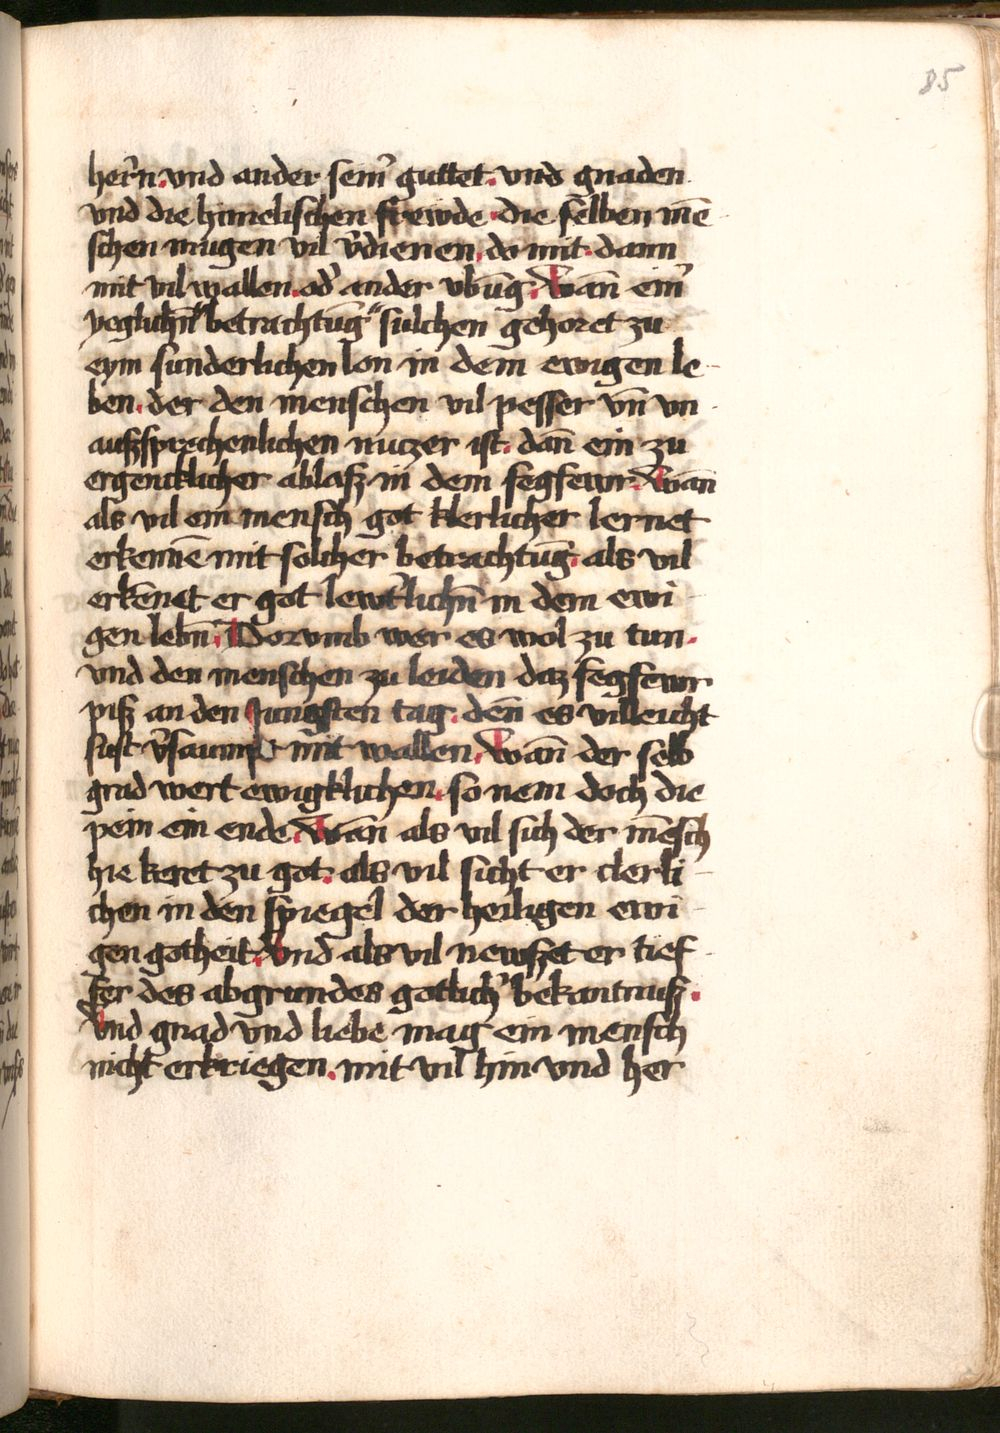 85
herˀn. vnd ander seinˀ guttet. vnd gnaden
vnd die himelischen frewde. die selben mē
schen mugen vil v̓dienen, do mit. dann
mit vil wallen. odˀ ander vbūg. Wān einˀ
yeglichn̄ betrachtūg sulchen gehoret zu
eym sunderlichen lon in dem ewigen le
ben. der den menschen vil pesser vn̄ vn
außsprechenlichen nuczer ist. dan̄ ein zu
ergencklicher ablaß in dem fegfewr. Wān
als vil ein mensch got klerlicher lernet
erkennē mit solcher betrachtūg. als vil
erkēnet er got lewtˀlichn̄ in dem ewi
gen lebn̄. Dorvmb wer es wol zu tun.
vnd den menschen zu leiden daz fegfewr
piß an den Jungsten tag. den̄ es villeicht
sust v̓saumpt mit wallen. Wan̄ der selb
grad wert ewigklichen. so nem doch die
pein ein ende. Wān als vil sich der mēsch
hie keret zu got. als vil sicht er clerli
chen in den spiegel der heiligen ewi
gen gotheit. Vnd als vil newßet er tief
fer des abgrundes gotlichˀ bekantnuß.
Vnd gnad vnd liebe mag ein mensch
nicht erkriegen. mit vil hin vnd her